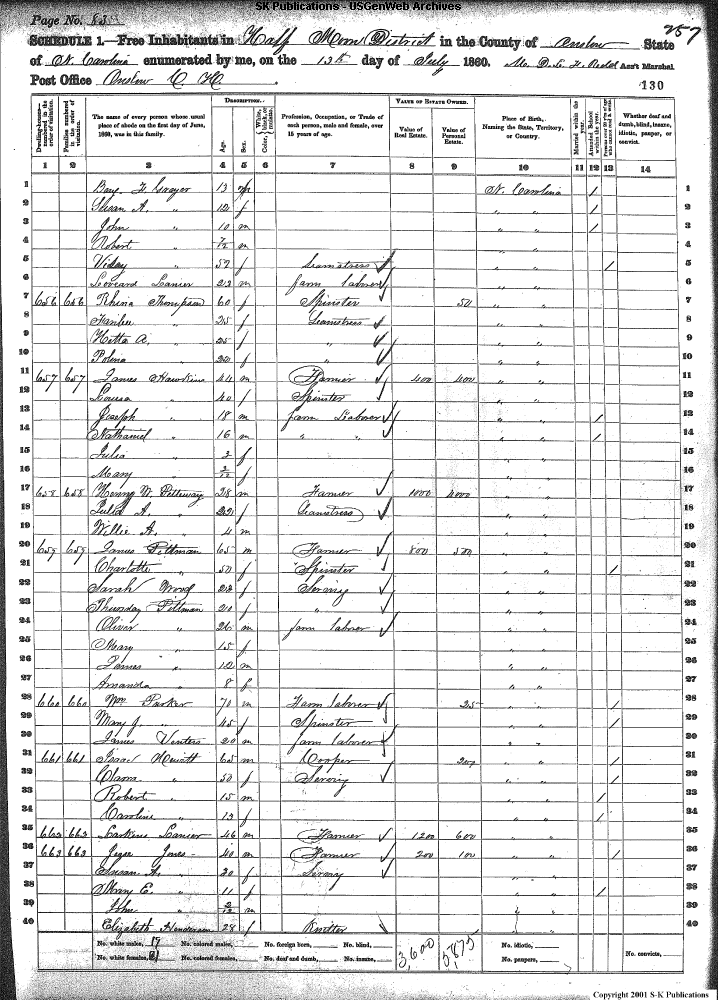 SK Publications - USGenWeb Archives
Page No. 83
257
SCHEDULE 1.—Free Inhabitants in Half Moon District in the County of Onslow State
of N. Carolina enumerated by me, on the 13th day of July 1860. Ass't Marshal.
Post Office Onslow C. H.
130
Dwelling-houses—numbered in the order of visitation.
Families numbered in the order of visitation.
The name of every person whose usual place of abode on the first day of June, 1860, was in this family.
DESCRIPTION.
Age. Sex. White, black, or mulatto. Color,
Profession, Occupation, or Trade of each person, male and female, over 15 years of age.
VALUE OF ESTATE OWNED.
Value of Real Estate. Value of Personal Estate.
Place of Birth, Naming the State, Territory, or Country.
Married within the year. Attended School within the year.
Whether deaf and dumb, blind, insane, idiotic, pauper, or convict.
1 2 3 4 5 6 7 8 9 10 11 12 13 14
1 13 N. Carolina / 1
2 Susan A. " 12 f " " / 2
3 John " 10 m " " / 3
4 Robert " m " " 4
5 52 f Seamstress " " / 5
6 Lanier 23 m farm laborer " " 6
7 656 656 Thompson 60 f Spinster 50 " " 7
8 " 25 f Seamstress " " 8
9 Hetta A. " 25 f " " " 9
10 " 22 f " " " 10
11 657 657 James Hawkins 44 m Farmer 400 400 " " 11
12 Louisa " 40 f Spinster " " 12
13 Joseph " 18 m farm Laborer " " / 13
14 Nathaniel " 16 m " " " " / 14
15 Julia " 3 f " " 15
16 Mary " f " " 16
17 658 658 Henry W. 28 m Farmer 1000 4000 " " 17
18 Julia A. " 22 f Seamstress " " 18
19 Willie A. " 4 m " " 19
20 659 659 James Pittman 65 m Farmer 800 500 " " 20
21 Charlotte " 50 f Spinster " " / 21
22 Sarah Wood f Serving " " 22
23 Thursday Pittman 20 f " " " 23
24 Oliver " 26 m farm laborer " " 24
25 Mary " 15 f " " 25
26 James " 12 m " " 26
27 Amanda " 8 f " " 27
28 660 660 Wm Parker 70 m Farm laborer 25 " " / 28
29 Mary J. " 45 f Spinster " " / 29
30 James Venters 20 m farm laborer " " 30
31 661 661 Isaac Hewitt 65 m Cooper 200 " " / 31
32 " 50 f Serving " " / 32
33 Robert " 15 m " " / 33
34 Caroline " 13 f " " / 34
35 662 662 Larkins Lanier 46 m Farmer 1200 600 " " 35
36 663 663 Jesse Jones 40 m Farmer 200 100 " " / 36
37 Susan A. " 30 f Serving " " 37
38 Mary E. " 11 f " " / 38
39 John " m " " 39
40 Elizabeth Henderson 28 f Knitter " " 40
No. white males, 19 No. colored males, No. foreign born, No. blind, 3,600 5,875 No. idiotic,
No. white females, 21 No. colored females, No. deaf and dumb, No. insane, No. paupers, No. convicts,
Copyright 2001 S-K Publications